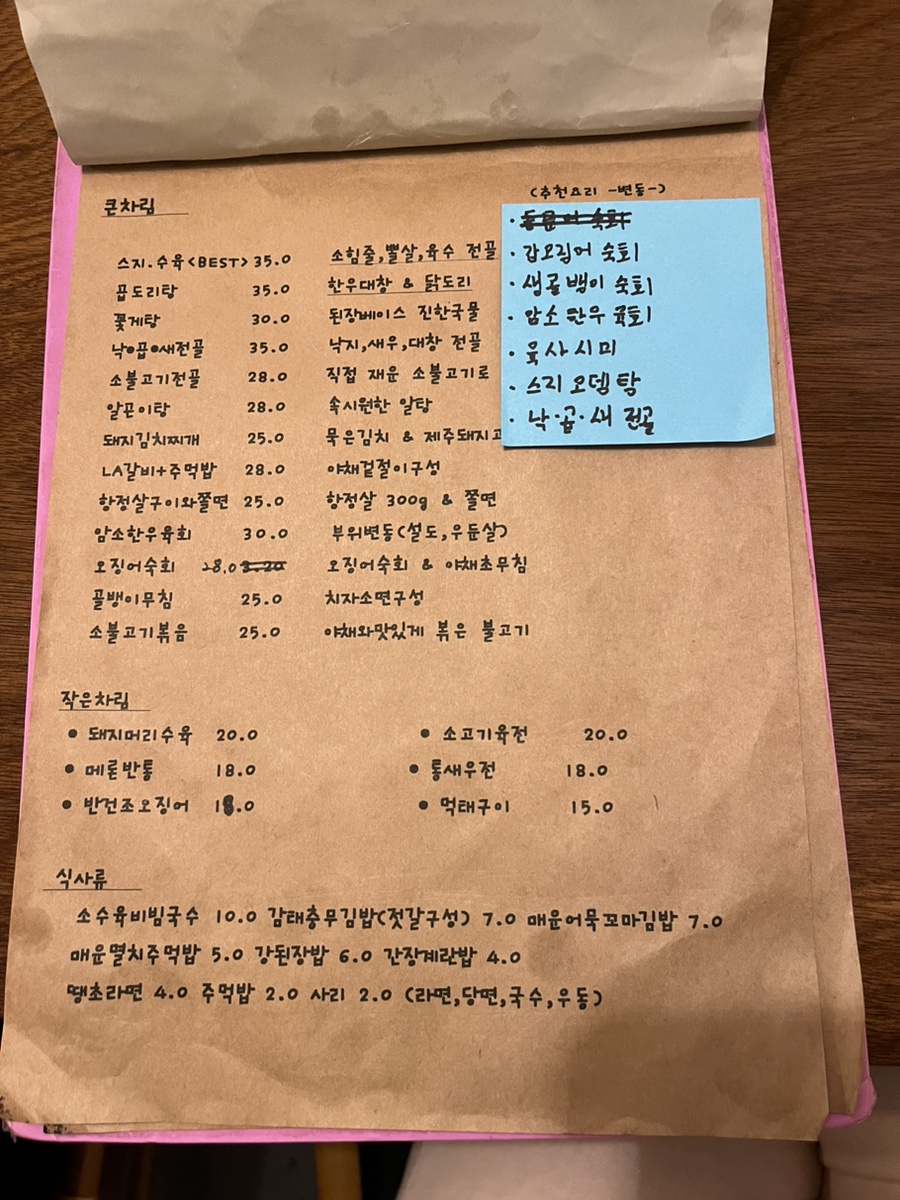 큰차림
(추천요리 -변동-)
· 갑오징어 숙회
· 생골뱅이 숙회
· 암소 한우 육회
· 육사시미
· 스지 오뎅탕
· 낙·곱·새 전골
스지.수육<BEST> 35.0 소힘줄,뽈살,육수 전골
곱도리탕 35.0 한우대창 & 닭도리
꽃게탕 30.0 된장베이스 진한국물
낙•곱•새전골 35.0 낙지,새우,대창 전골
소불고기전골 28.0 직접 재운 소불고기로
알곤이탕 28.0 속시원한 알탕
돼지김치찌개 25.0 묵은김치 & 제주돼지고
LA갈비+주먹밥 28.0 야채겉절이구성
항정살구이와쫄면 25.0 항정살 300g & 쫄면
암소한우육회 30.0 부위변동(설도,우둔살)
오징어숙회 28.0 오징어숙회 & 야채초무침
골뱅이무침 25.0 치자소면구성
소불고기볶음 25.0 야채와맛있게 볶은 불고기
작은차림
• 돼지머리수육 20.0 • 소고기육전 20.0
• 메론반통 18.0 • 통새우전 18.0
• 반건조오징어 18.0 • 먹태구이 15.0
식사류
소수육비빔국수 10.0 감태충무김밥(젓갈구성) 7.0 매운어묵꼬마김밥 7.0
매운멸치주먹밥 5.0 강된장밥 6.0 간장계란밥 4.0
땡초라면 4.0 주먹밥 2.0 사리 2.0 (라면,당면,국수,우동)